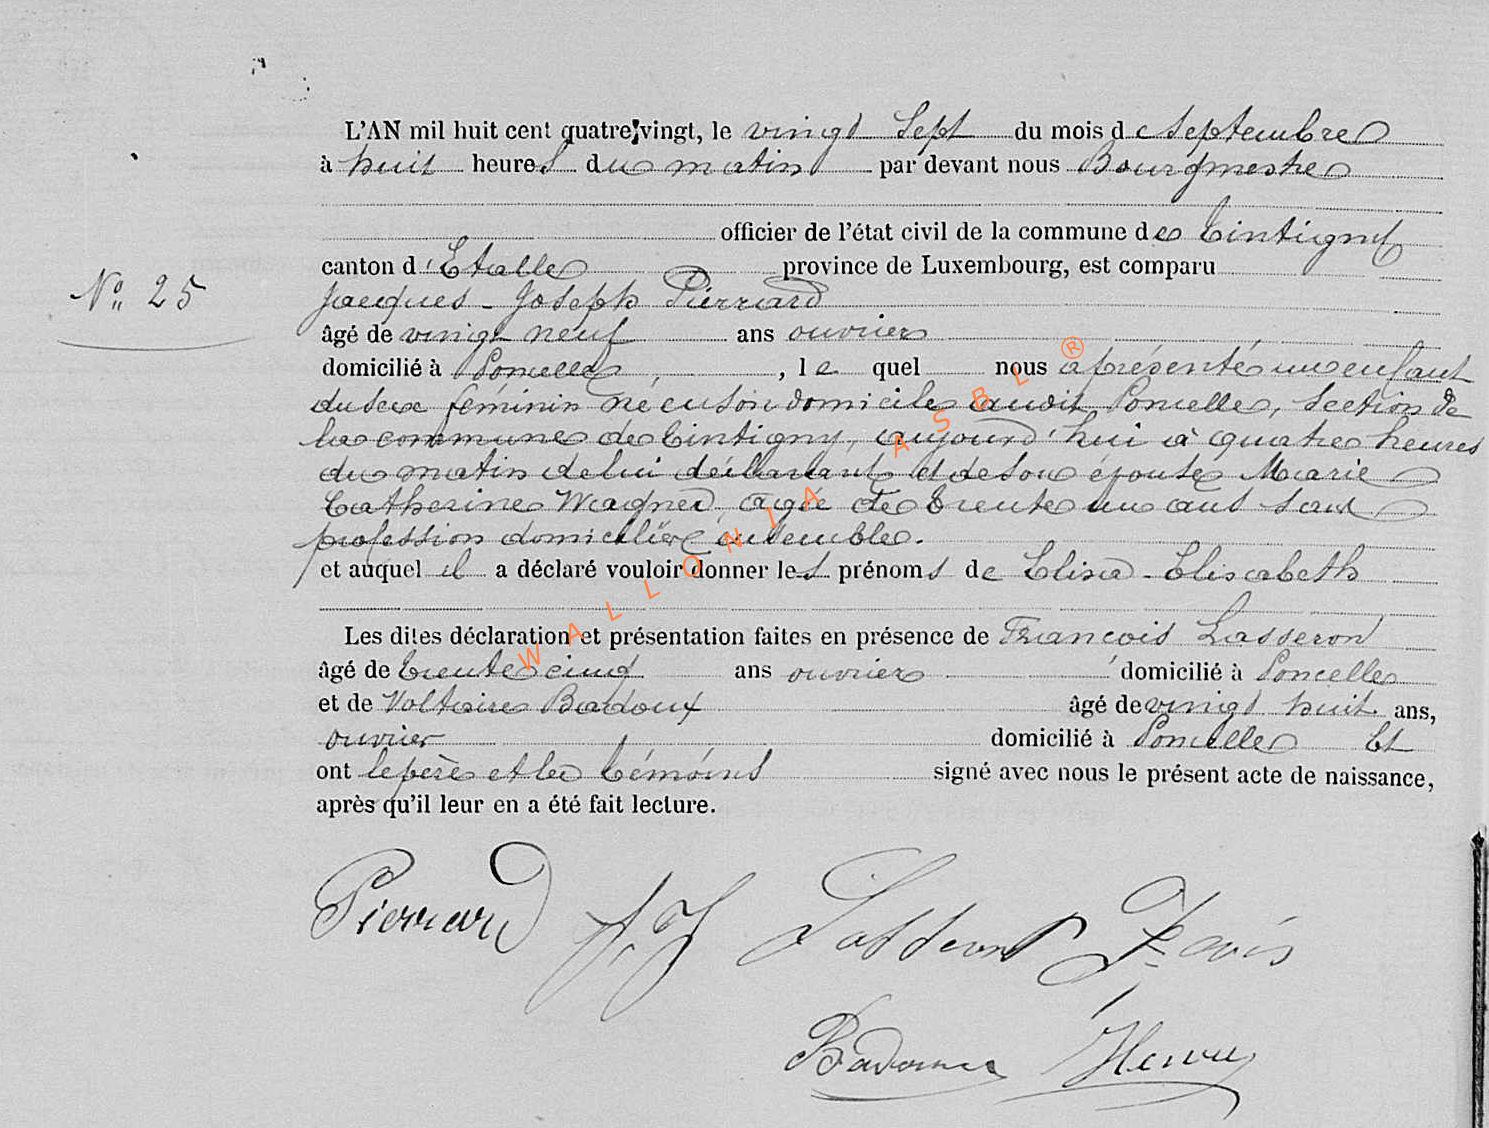 L'AN mil huit cent quatre-vingt, le vingt Sept du mois de Septembre
à huit heures du matin par devant nous Bourgmestre
officier de l'état civil de la commune de Tintigny
canton d'Etalle province de Luxembourg, est comparu
Nº 25
Jacques-Joseph Pierrard
âgé de vingt neuf ans ouvrier
domicilié à Poncelle, , le quel nous a présenté un enfant
du sexe féminin né en son domicile audit Poncelle, section de
la commune de Tintigny, aujourd'hui à quatre heures
du matin de lui déclarant et de son épouse Marie
Catherine Wagner, agée de trente un ans sans
profession domiciliée ensemble.
et auquel il a déclaré vouloir donner les prénoms de Elisa-Elisabeth
Les dites déclaration et présentation faites en présence de François Lasseron
âgé de trente cinq ans ouvrier domicilié à Poncelle
et de Voltaire Badoux âgé de vingt huit ans,
ouvrier domicilié à Poncelle Et
ont le père et les témoins signé avec nous le présent acte de naissance,
après qu'il leur en a été fait lecture.
Pierrard J. J Lasseront
Badoux
WALLONIA ASBL ®